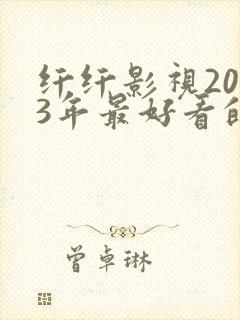 纤纤影视20
3年最好看的
曾卓琳